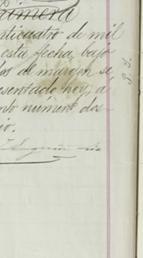 Primera
nticuatro de mil
esta fecha, bajo
os de margen se
esentado hoy, a
ento número dos-
io.